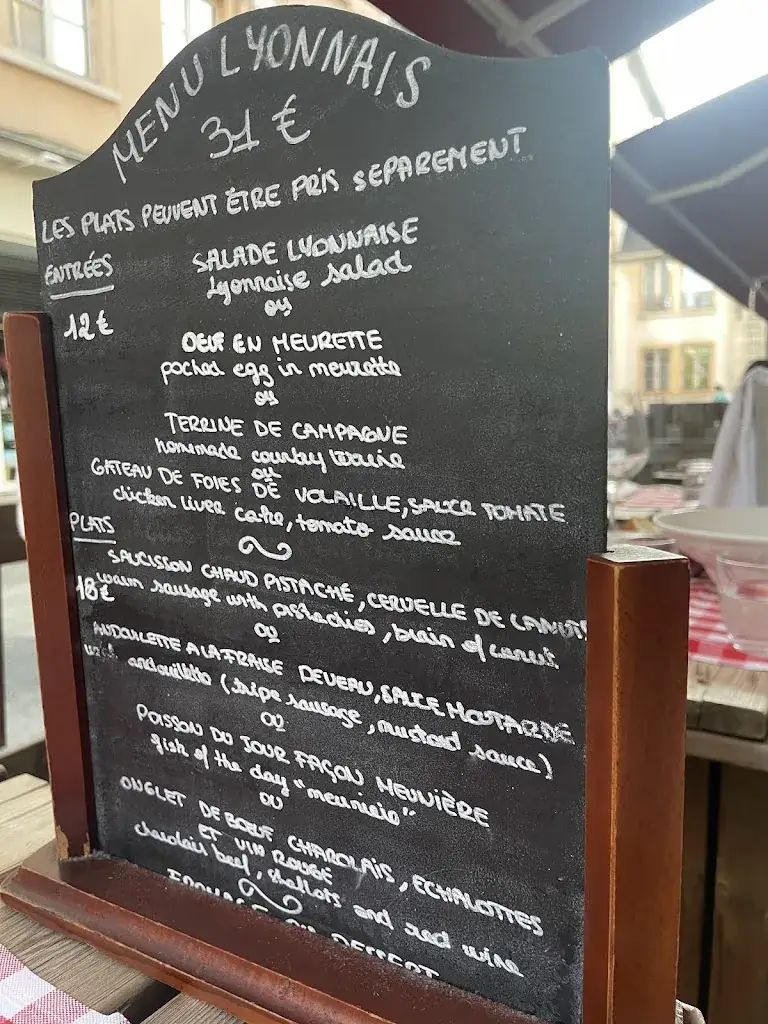 MENU LYONNAIS
31 €
LES PLATS PEUVENT ÊTRE PRIS SEPAREMENT
ENTRÉES
SALADE LYONNAISE
Lyonnaise salad
ou
12€
OEUF EN MEURETTE
poched egg in meurette
ou
TERRINE DE CAMPAGNE
homemade
ou
GATEAU DE FOIES DE VOLAILLE, SAUCE TOMATE
chicken liver cake, tomato sauce
PLATS
SAUCISSON CHAUD PISTACHÉ, CERVELLE DE CANUTS
18€
warm sausage with pistachios, brain of canut
OU
ANDOUILLETTE A LA FRAISE DE VEAU, SAUCE MOUTARDE
andouillette (tripe sausage, mustard sauce)
OU
POISSON DU JOUR FAÇON MEUNIÈRE
fish of the day "meuniere"
OU
ONGLET DE BŒUF CHAROLAIS, ECHALOTTES
ET VIN ROUGE
charolais beef, shallots and red wine
FROMAGE OU DESSERT